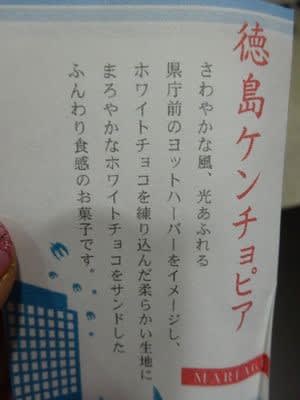 徳島ケンチョピア
さわやかな風、光あふれる
県庁前のヨットハーバーをイメージし、
ホワイトチョコを練り込んだ柔らかい生地に
まろやかなホワイトチョコをサンドした
ふんわり食感のお菓子です。